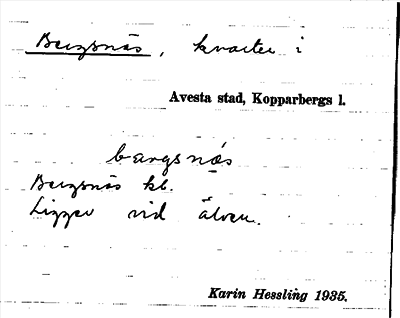 Bergsnäs, kvarter i
Avesta stad, Kopparbergs l.
bargsnǫs
Bergsnäs kb.
Ligger vid älven.
Karin Hessling 1935.